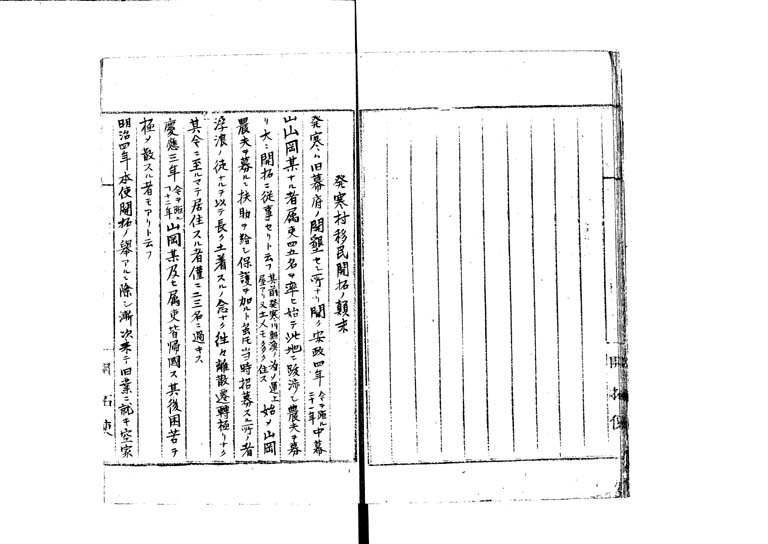 発寒村移民開拓ノ顛末
発寒ハ旧幕府ノ開墾セシ所ナリ聞ク安政四年今ヲ距ル二十一年中幕
山山岡某ナル者属吏四五名ヲ率ヒ始テ此地ニ跋渉シ農夫ヲ募
リ大ニ開拓ニ従事セリト云フ 始メ山岡
農夫ヲ募ルニ扶助ヲ給シ保護ヲ加ルト雖モ当時招募スル所ノ者
浮浪ノ徒ナルヲ以テ長ク土着スルノ念ナク往々離散遷転極リナク
其今ニ至ルマテ居住スル者僅ニ二三名ニ過キス
慶應三年今ヲ距ル十一年山岡某及ヒ属吏皆帰國ス其後困苦ヲ
極メ散スル者モアリト云フ
明治四年本使開拓ノ挙アルニ際シ漸次来テ旧業ニ就キ空家
開拓使
開拓使